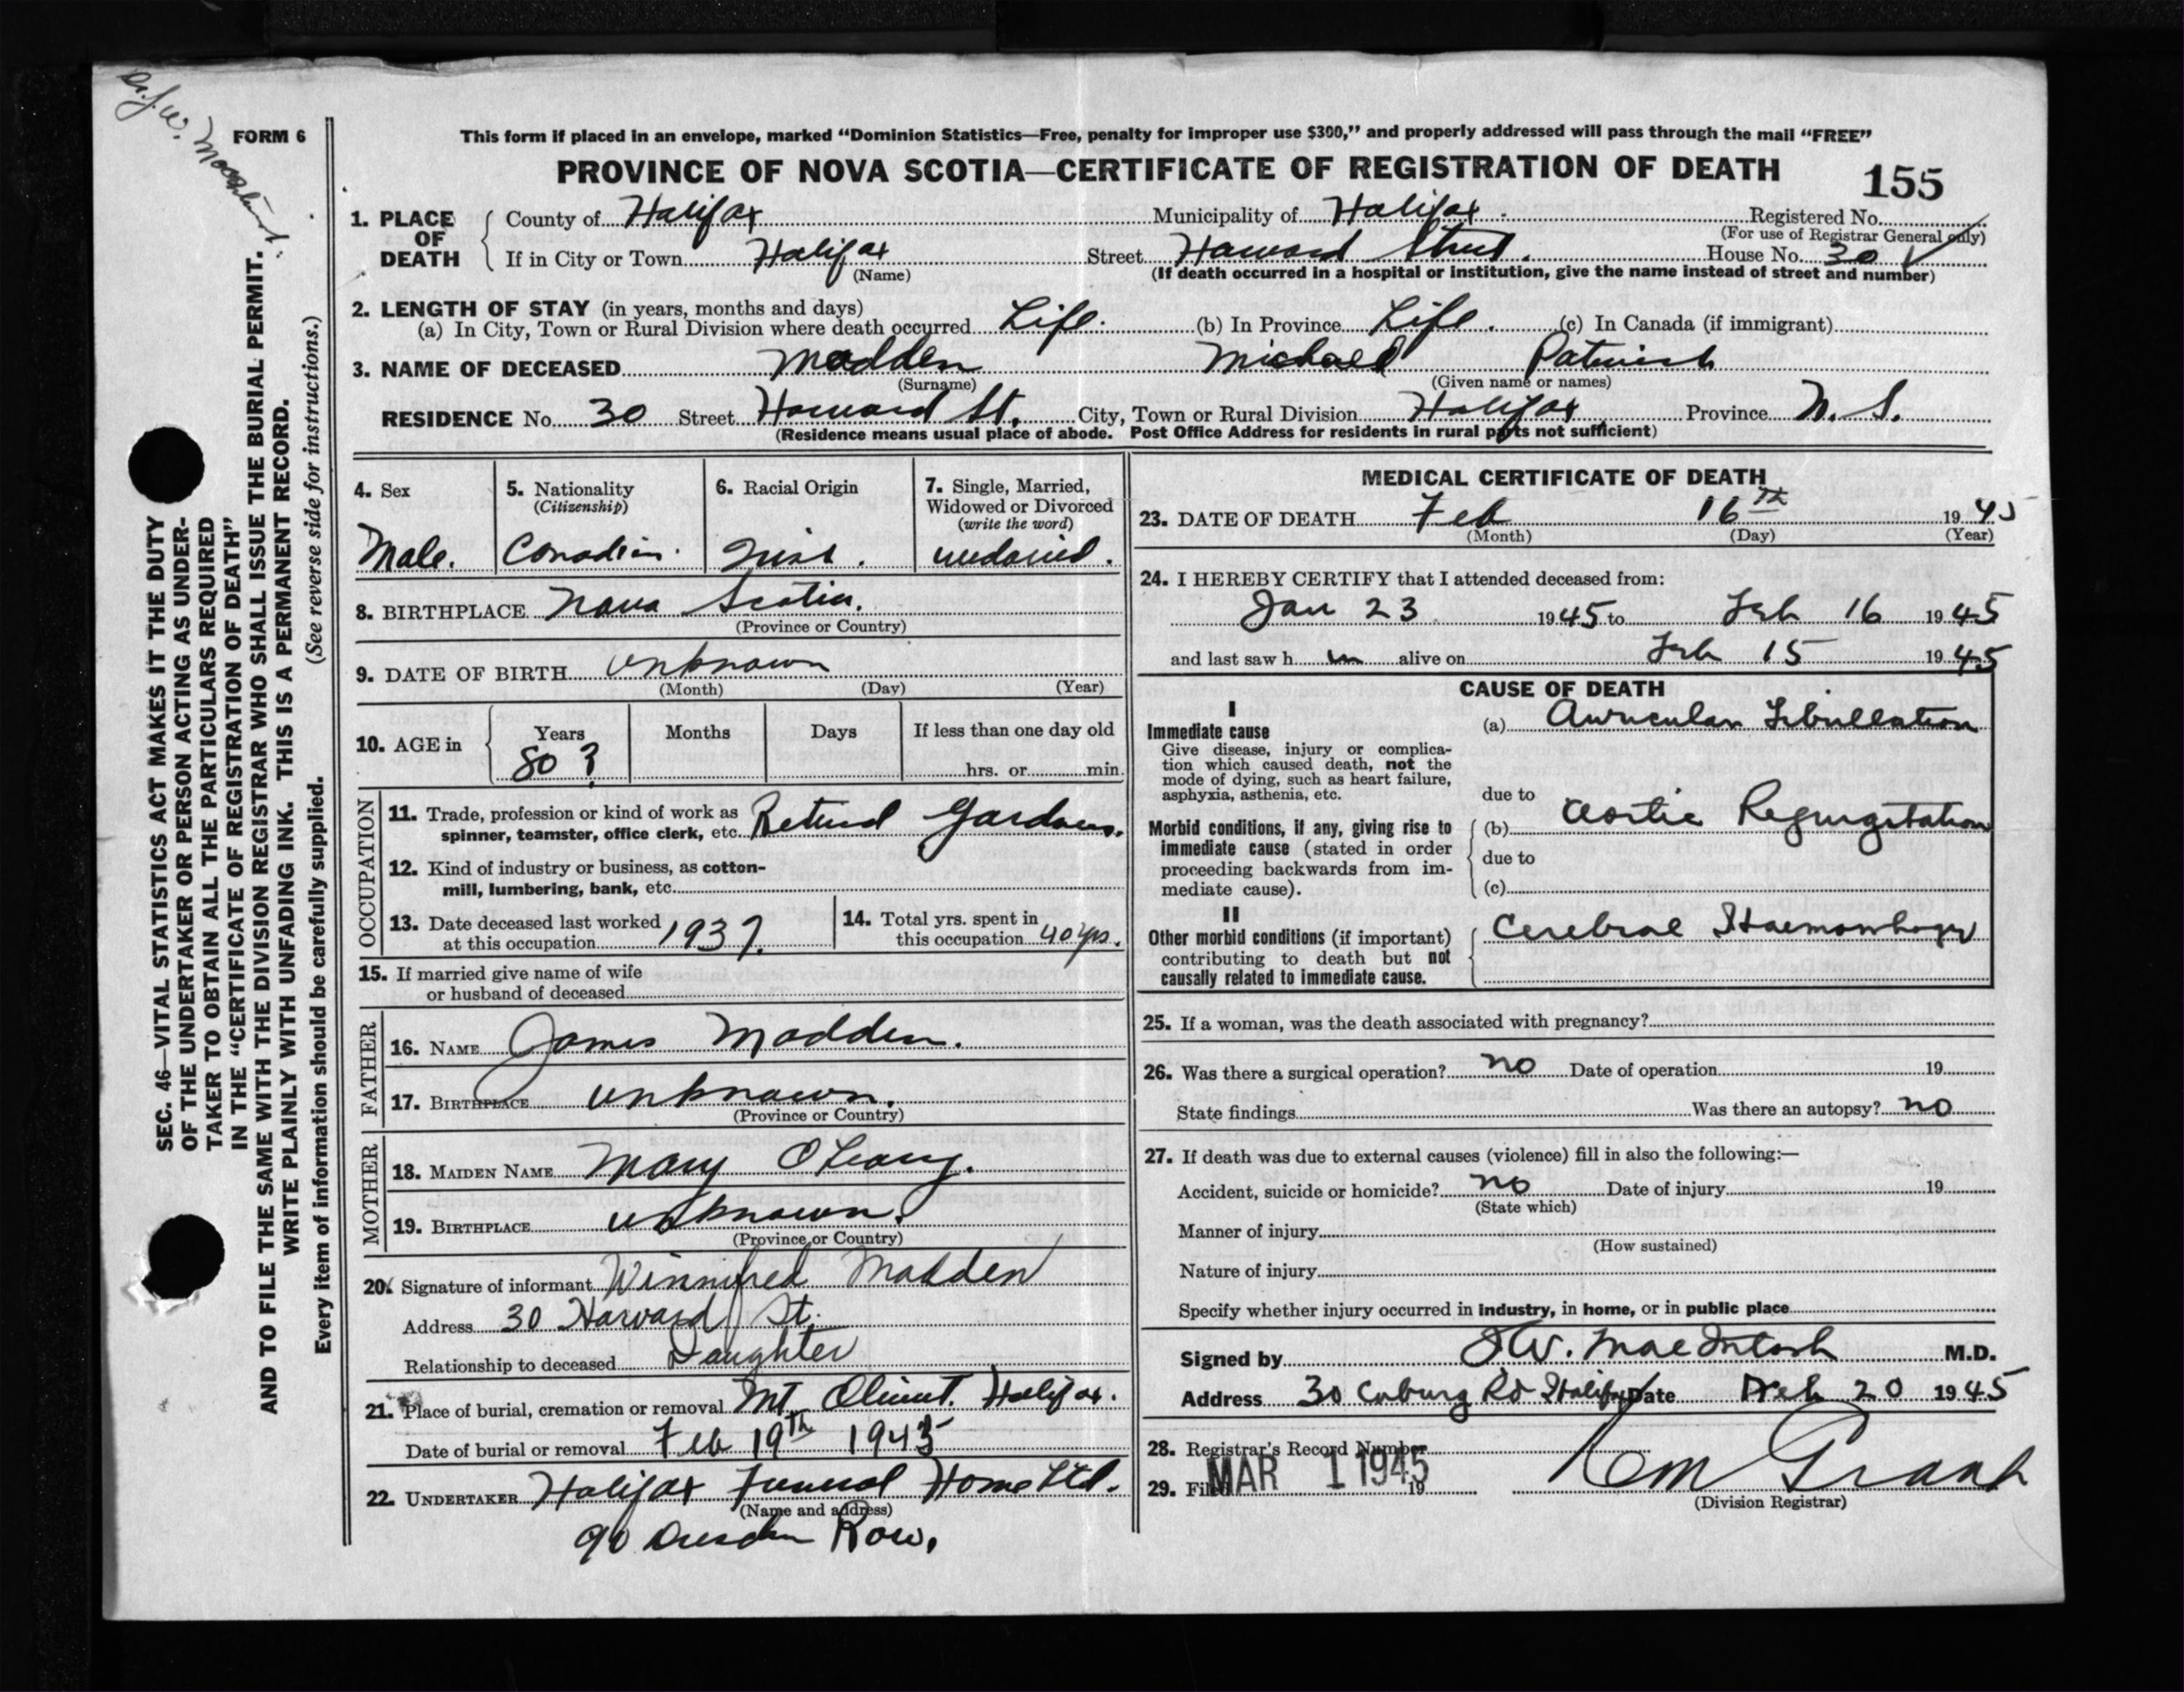 Dr. J. W. MacIntosh
FORM 6
This form if placed in an envelope, marked “Dominion Statistics—Free, penalty for improper use $300,” and properly addressed will pass through the mail “FREE”
PROVINCE OF NOVA SCOTIA—CERTIFICATE OF REGISTRATION OF DEATH
155
1. PLACE OF DEATH
County of Halifax Municipality of Halifax. Registered No.
(For use of Registrar General only)
If in City or Town Halifax Street Harvard Street. House No. 30
(Name) (If death occurred in a hospital or institution, give the name instead of street and number)
2. LENGTH OF STAY (in years, months and days)
(a) In City, Town or Rural Division where death occurred Life. (b) In Province Life. (c) In Canada (if immigrant)
3. NAME OF DECEASED Madden Michael Patrick
(Surname) (Given name or names)
RESIDENCE No. 30 Street Harvard St. City, Town or Rural Division Halifax Province N. S.
(Residence means usual place of abode. Post Office Address for residents in rural parts not sufficient)
4. Sex
Male.
5. Nationality
(Citizenship)
Canadian.
6. Racial Origin
Irish.
7. Single, Married,
Widowed or Divorced
(write the word)
widowed.
8. BIRTHPLACE Nova Scotia.
(Province or Country)
9. DATE OF BIRTH unknown
(Month) (Day) (Year)
10. AGE in Years Months Days If less than one day old
80 ? hrs. or min.
OCCUPATION
11. Trade, profession or kind of work as
spinner, teamster, office clerk, etc. Retired Gardner.
12. Kind of industry or business, as cotton-
mill, lumbering, bank, etc.
13. Date deceased last worked
at this occupation 1937.
14. Total yrs. spent in
this occupation 40 yrs.
15. If married give name of wife
or husband of deceased
FATHER
16. NAME James Madden.
17. BIRTHPLACE unknown.
(Province or Country)
MOTHER
18. MAIDEN NAME Mary OLeary.
19. BIRTHPLACE unknown.
(Province or Country)
20. Signature of informant Winnifred Madden
Address 30 Harvard St.
Relationship to deceased Daughter
21. Place of burial, cremation or removal Mt. Olivet. Halifax.
Date of burial or removal Feb 19th 1945
22. UNDERTAKER Halifax Funeral Home Ltd.
(Name and address)
90 Dresden Row.
MEDICAL CERTIFICATE OF DEATH
23. DATE OF DEATH Feb 16th 1945
(Month) (Day) (Year)
24. I HEREBY CERTIFY that I attended deceased from:
Jan 23 1945 to Feb 16 1945
and last saw him alive on Feb 15 1945
CAUSE OF DEATH
I
Immediate cause
Give disease, injury or complica-
tion which caused death, not the
mode of dying, such as heart failure,
asphyxia, asthenia, etc.
(a) Auricular Fibrillation
due to
Morbid conditions, if any, giving rise to
immediate cause (stated in order
proceeding backwards from im-
mediate cause).
(b) Aortic Regurgitation
due to
(c)
II
Other morbid conditions (if important)
contributing to death but not
causally related to immediate cause.
Cerebral Haemorrhage
25. If a woman, was the death associated with pregnancy?
26. Was there a surgical operation? no Date of operation 19
State findings Was there an autopsy? no
27. If death was due to external causes (violence) fill in also the following:—
Accident, suicide or homicide? no Date of injury 19
(State which)
Manner of injury
(How sustained)
Nature of injury
Specify whether injury occurred in industry, in home, or in public place
Signed by J W. MacIntosh M.D.
Address 30 Coburg Rd Halifax Date Feb 20 1945
28. Registrar's Record Number
29. Filed MAR 1 1945 19
Grant
(Division Registrar)
SEC. 46—VITAL STATISTICS ACT MAKES IT THE DUTY
OF THE UNDERTAKER OR PERSON ACTING AS UNDER-
TAKER TO OBTAIN ALL THE PARTICULARS REQUIRED
IN THE “CERTIFICATE OF REGISTRATION OF DEATH”
AND TO FILE THE SAME WITH THE DIVISION REGISTRAR WHO SHALL ISSUE THE BURIAL PERMIT.
WRITE PLAINLY WITH UNFADING INK. THIS IS A PERMANENT RECORD.
Every item of information should be carefully supplied. (See reverse side for instructions.)